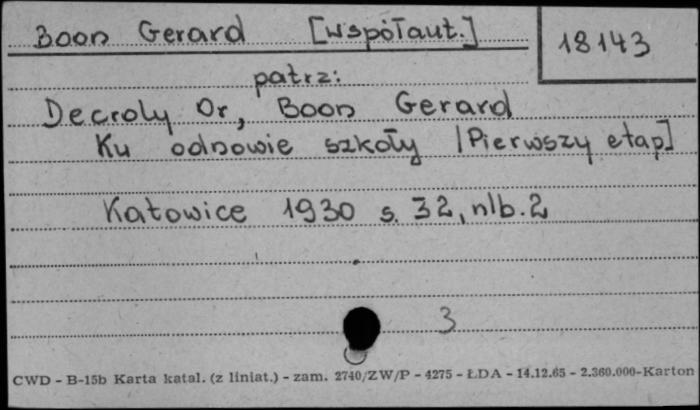 Boon Gerard [współaut.]
18143
patrz:
Decroly Or, Boon Gerard
Ku odnowie szkoły /Pierwszy etap]
Katowice 1930 s. 32, nlb. 2
3
CWD - B-15b Karta katal. (z liniat.) - zam. 2740/ZW/P - 4275 - ŁDA - 14.12.65 - 2.360.000-Karton